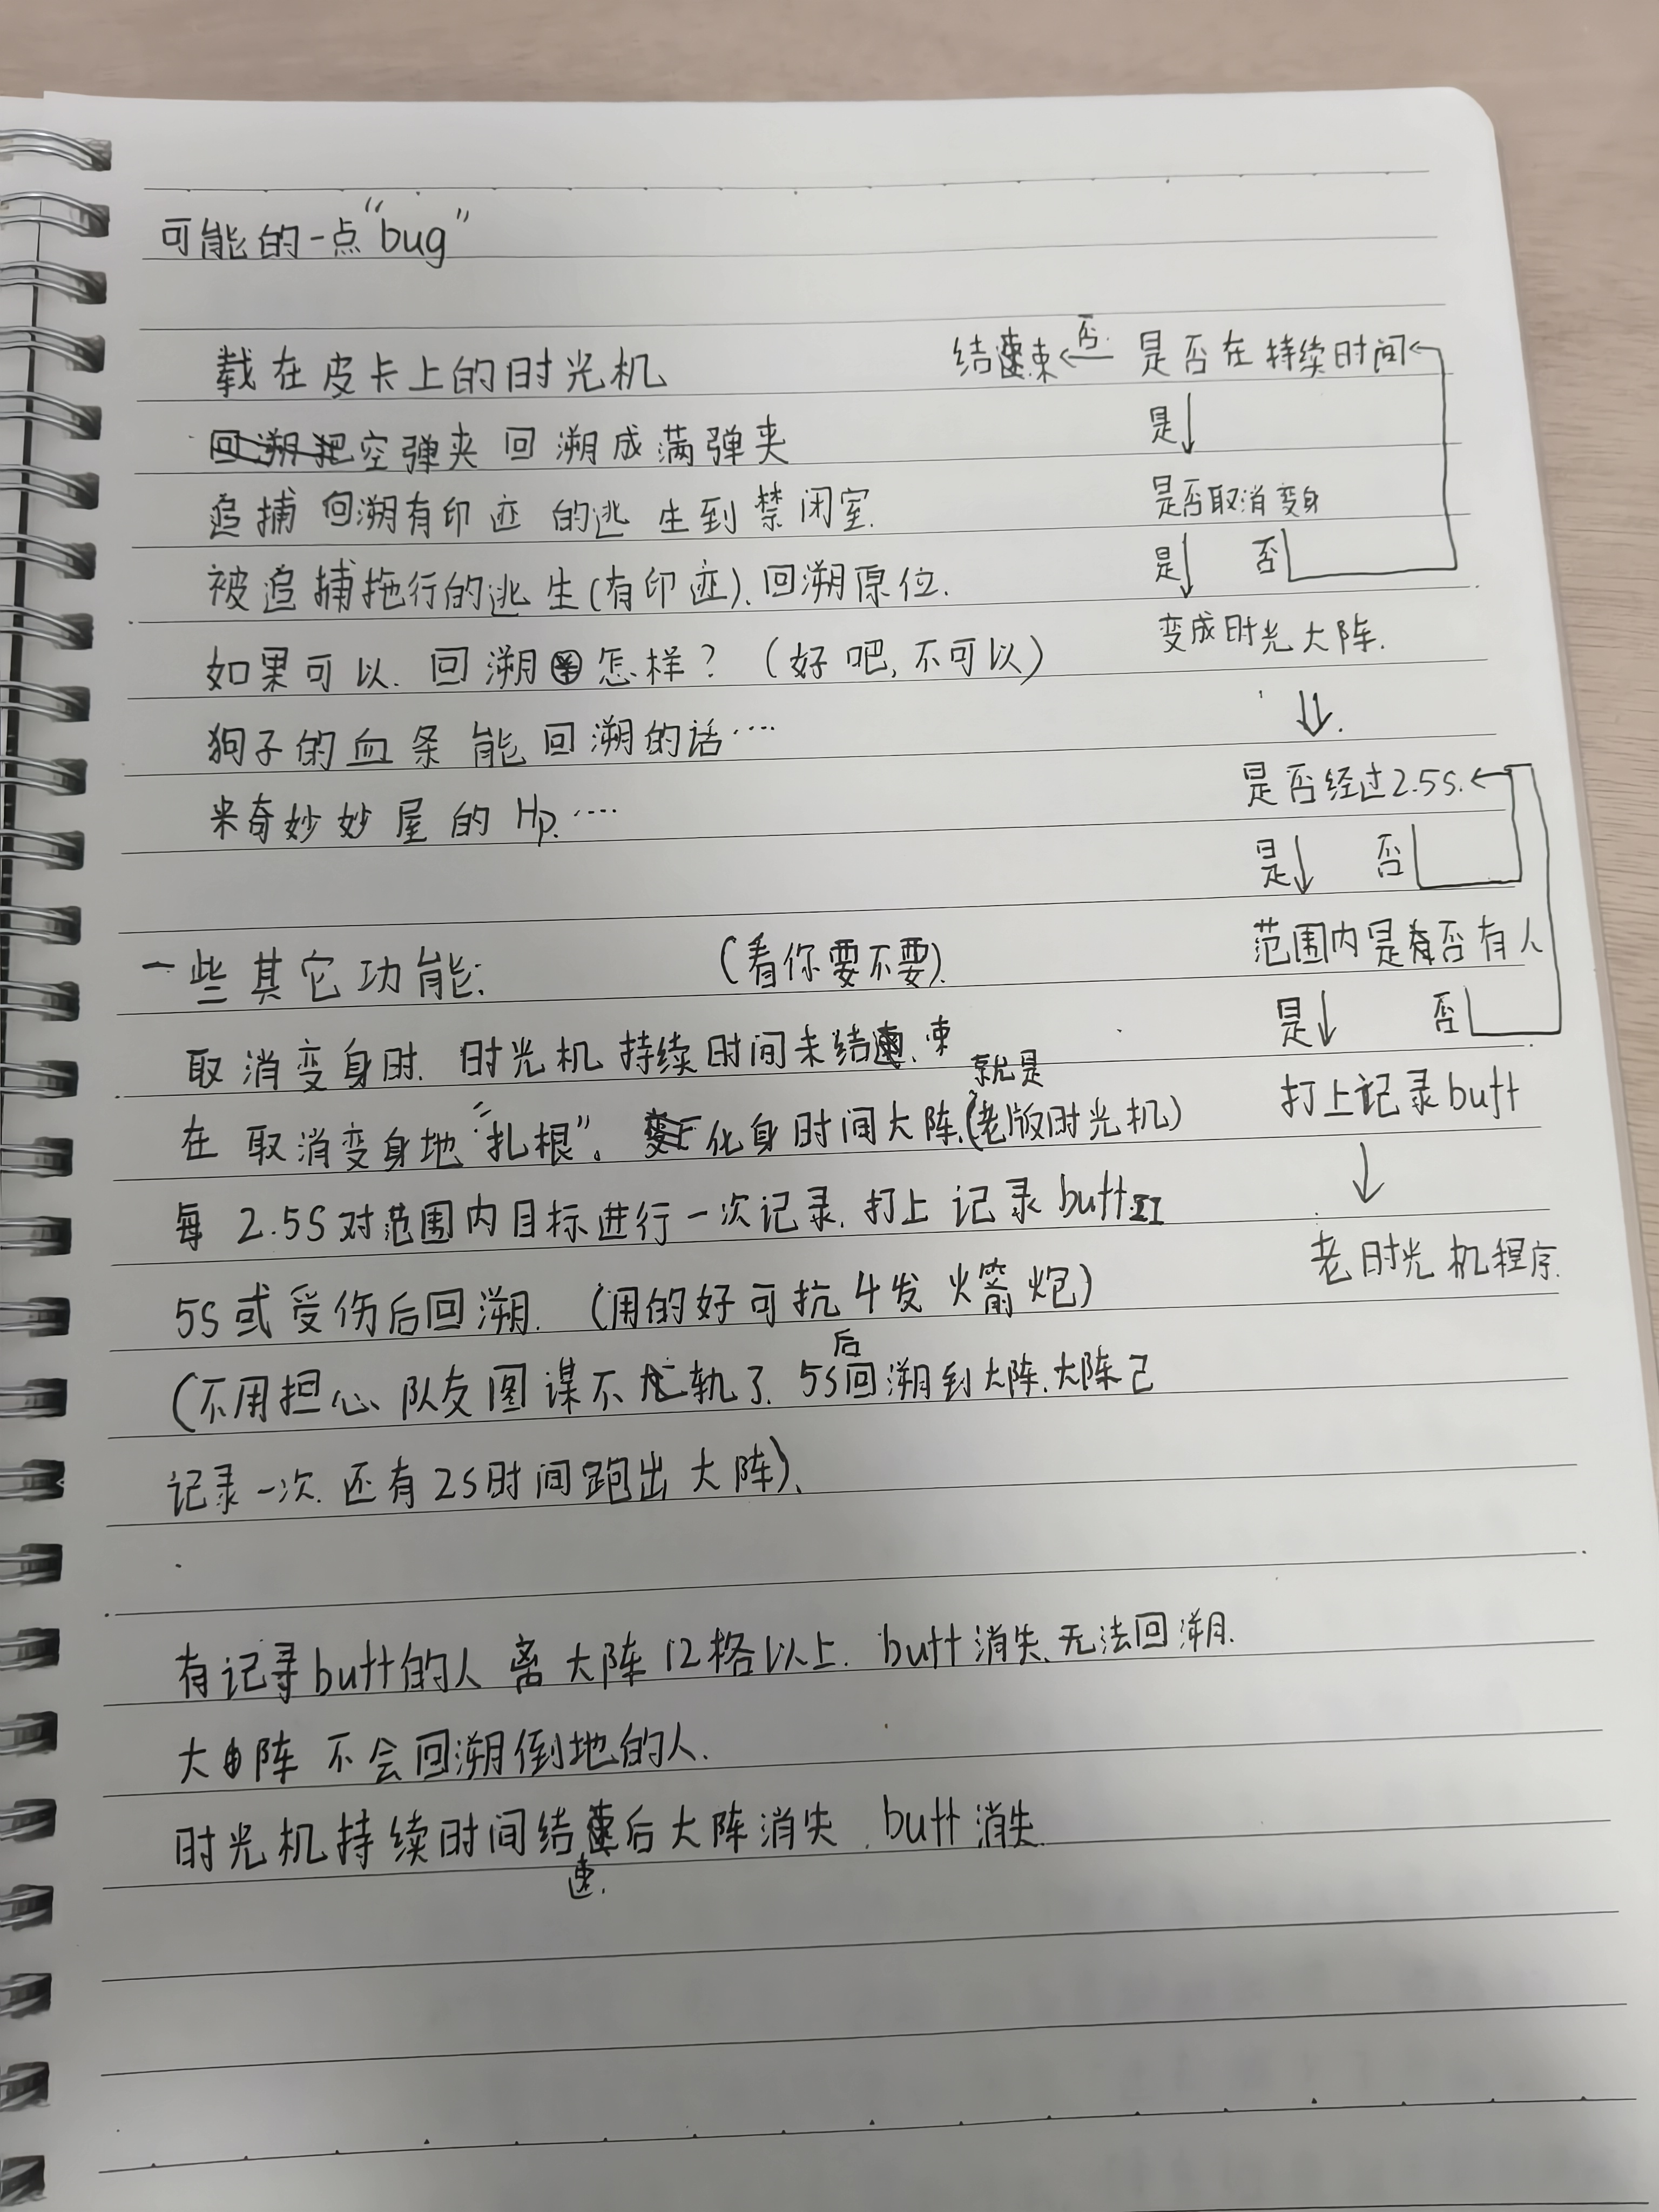 可能的一点“bug”
载在皮卡上的时光机
空弹夹回溯成满弹夹
追捕回溯有印迹的逃生到禁闭室.
被追捕拖行的逃生(有印迹).回溯原位.
如果可以.回溯¥怎样?(好吧,不可以)
狗子的血条能回溯的话……
米奇妙妙屋的Hp.……
一些其它功能: (看你要不要).
取消变身时.时光机持续时间未结束
在取消变身地“扎根”。化身时间大阵.(就是老版时光机)
每2.5S对范围内目标进行一次记录.打上记录buff
5S或受伤后回溯.(用的好可抗4发火箭炮)
(不用担心队友图谋不轨了.5S后回溯到大阵.大阵己
记录一次.还有2S时间跑出大阵).
有记录buff的人离大阵12格以上.buff消失.无法回溯.
大阵不会回溯倒地的人.
时光机持续时间结速后大阵消失.buff消失.
结束←否 是否在持续时间
是↓
是否取消变身
是↓ 否
变成时光大阵.
⇓
是否经过2.5S.
是↓ 否
范围内是否有人
是↓ 否
打上记录buff
↓
老时光机程序.